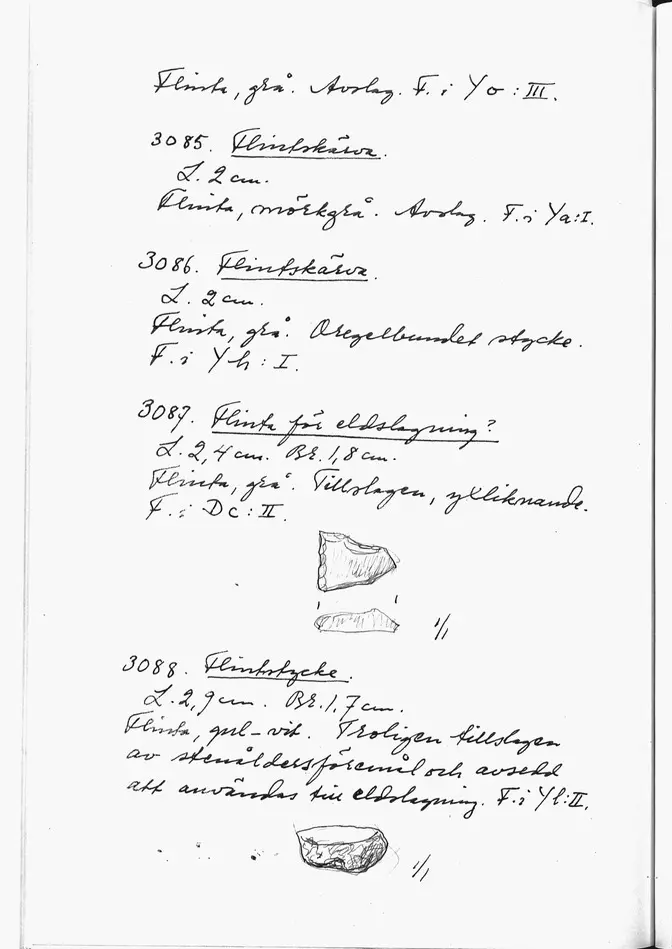 Flinta, grå. Avslag. F. i Yo : III.
3085. Flintskärva.
L. 2 cm.
Flinta, mörkgrå. Avslag. F. i Ya : I.
3086. Flintskärva.
L. 2 cm.
Flinta, grå. Oregelbundet stycke.
F. i Yh : I.
3087. Flinta för eldslagning?
L. 2,4 cm. Br. 1,8 cm.
Flinta, grå. Tillslagen, yxliknande.
F. i Dc : II.
1/1
3088. Flintstycke.
L. 2,9 cm. Br. 1,7 cm.
Flinta, gul-vit. Troligen tillslagen
av stenåldersföremål och avsedd
att användas till eldslagning. F. i Yl : II.
1/1